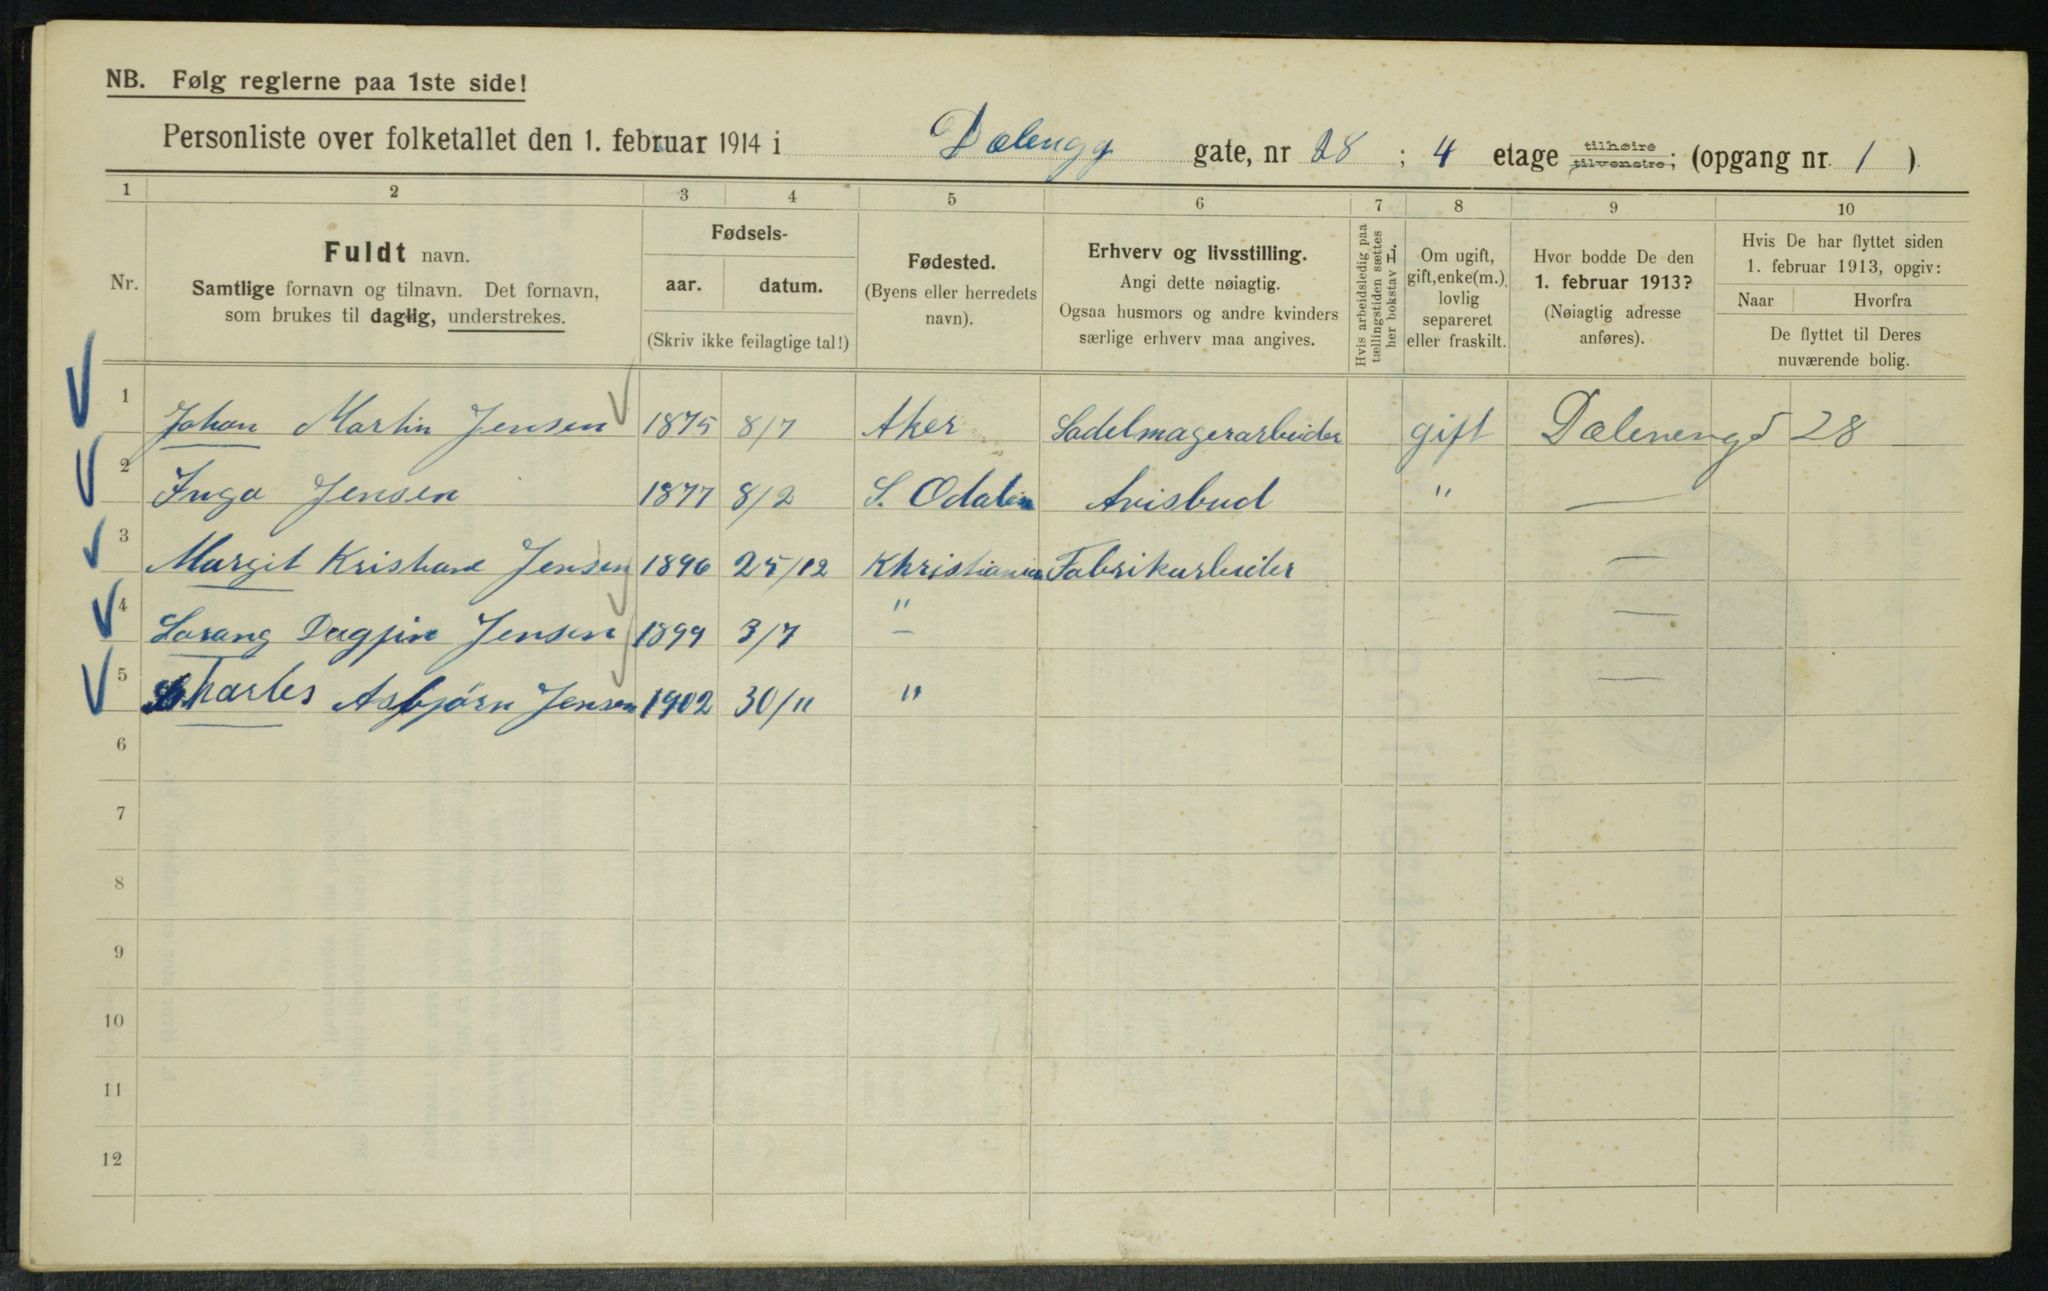 NB. Følg reglerne paa 1ste side!
Personliste over folketallet den 1. februar 1914 i Dælengg gate, nr 28 ; 4 etage tilhøire tilvenstre; (opgang nr. 1 ).
1 2 3 4 5 6 7 8 9 10
Nr.
Fuldt navn.
Samtlige fornavn og tilnavn. Det fornavn,
som brukes til daglig, understrekes.
Fødsels-
aar. datum.
(Skriv ikke feilagtige tal!)
Fødested.
(Byens eller herredets
navn).
Erhverv og livsstilling.
Angi dette nøiagtig.
Ogsaa husmors og andre kvinders
særlige erhverv maa angives.
Hvis arbeidsledig paa
tællingstiden sættes
her bokstav L.
Om ugift,
gift, enke(m.),
lovlig
separeret
eller fraskilt.
Hvor bodde De den
1. februar 1913?
(Nøiagtig adresse
anføres).
Hvis De har flyttet siden
1. februar 1913, opgiv:
Naar Hvorfra
De flyttet til Deres
nuværende bolig.
1 Johan Martin Jensen 1875 8/7 Aker Sadelmagerarbeider gift Dælenengd 28
2 Inga Jensen 1877 8/2 S. Odalen Avisbud " —
3 Margit Kristiane Jensen 1896 25/12 Khristiania Fabrikarbeider —
4 Dagfin Jensen 1899 3/7 " — —
5 Charles Asbjørn Jensen 1902 30/11 " —
6
7
8
9
10
11
12